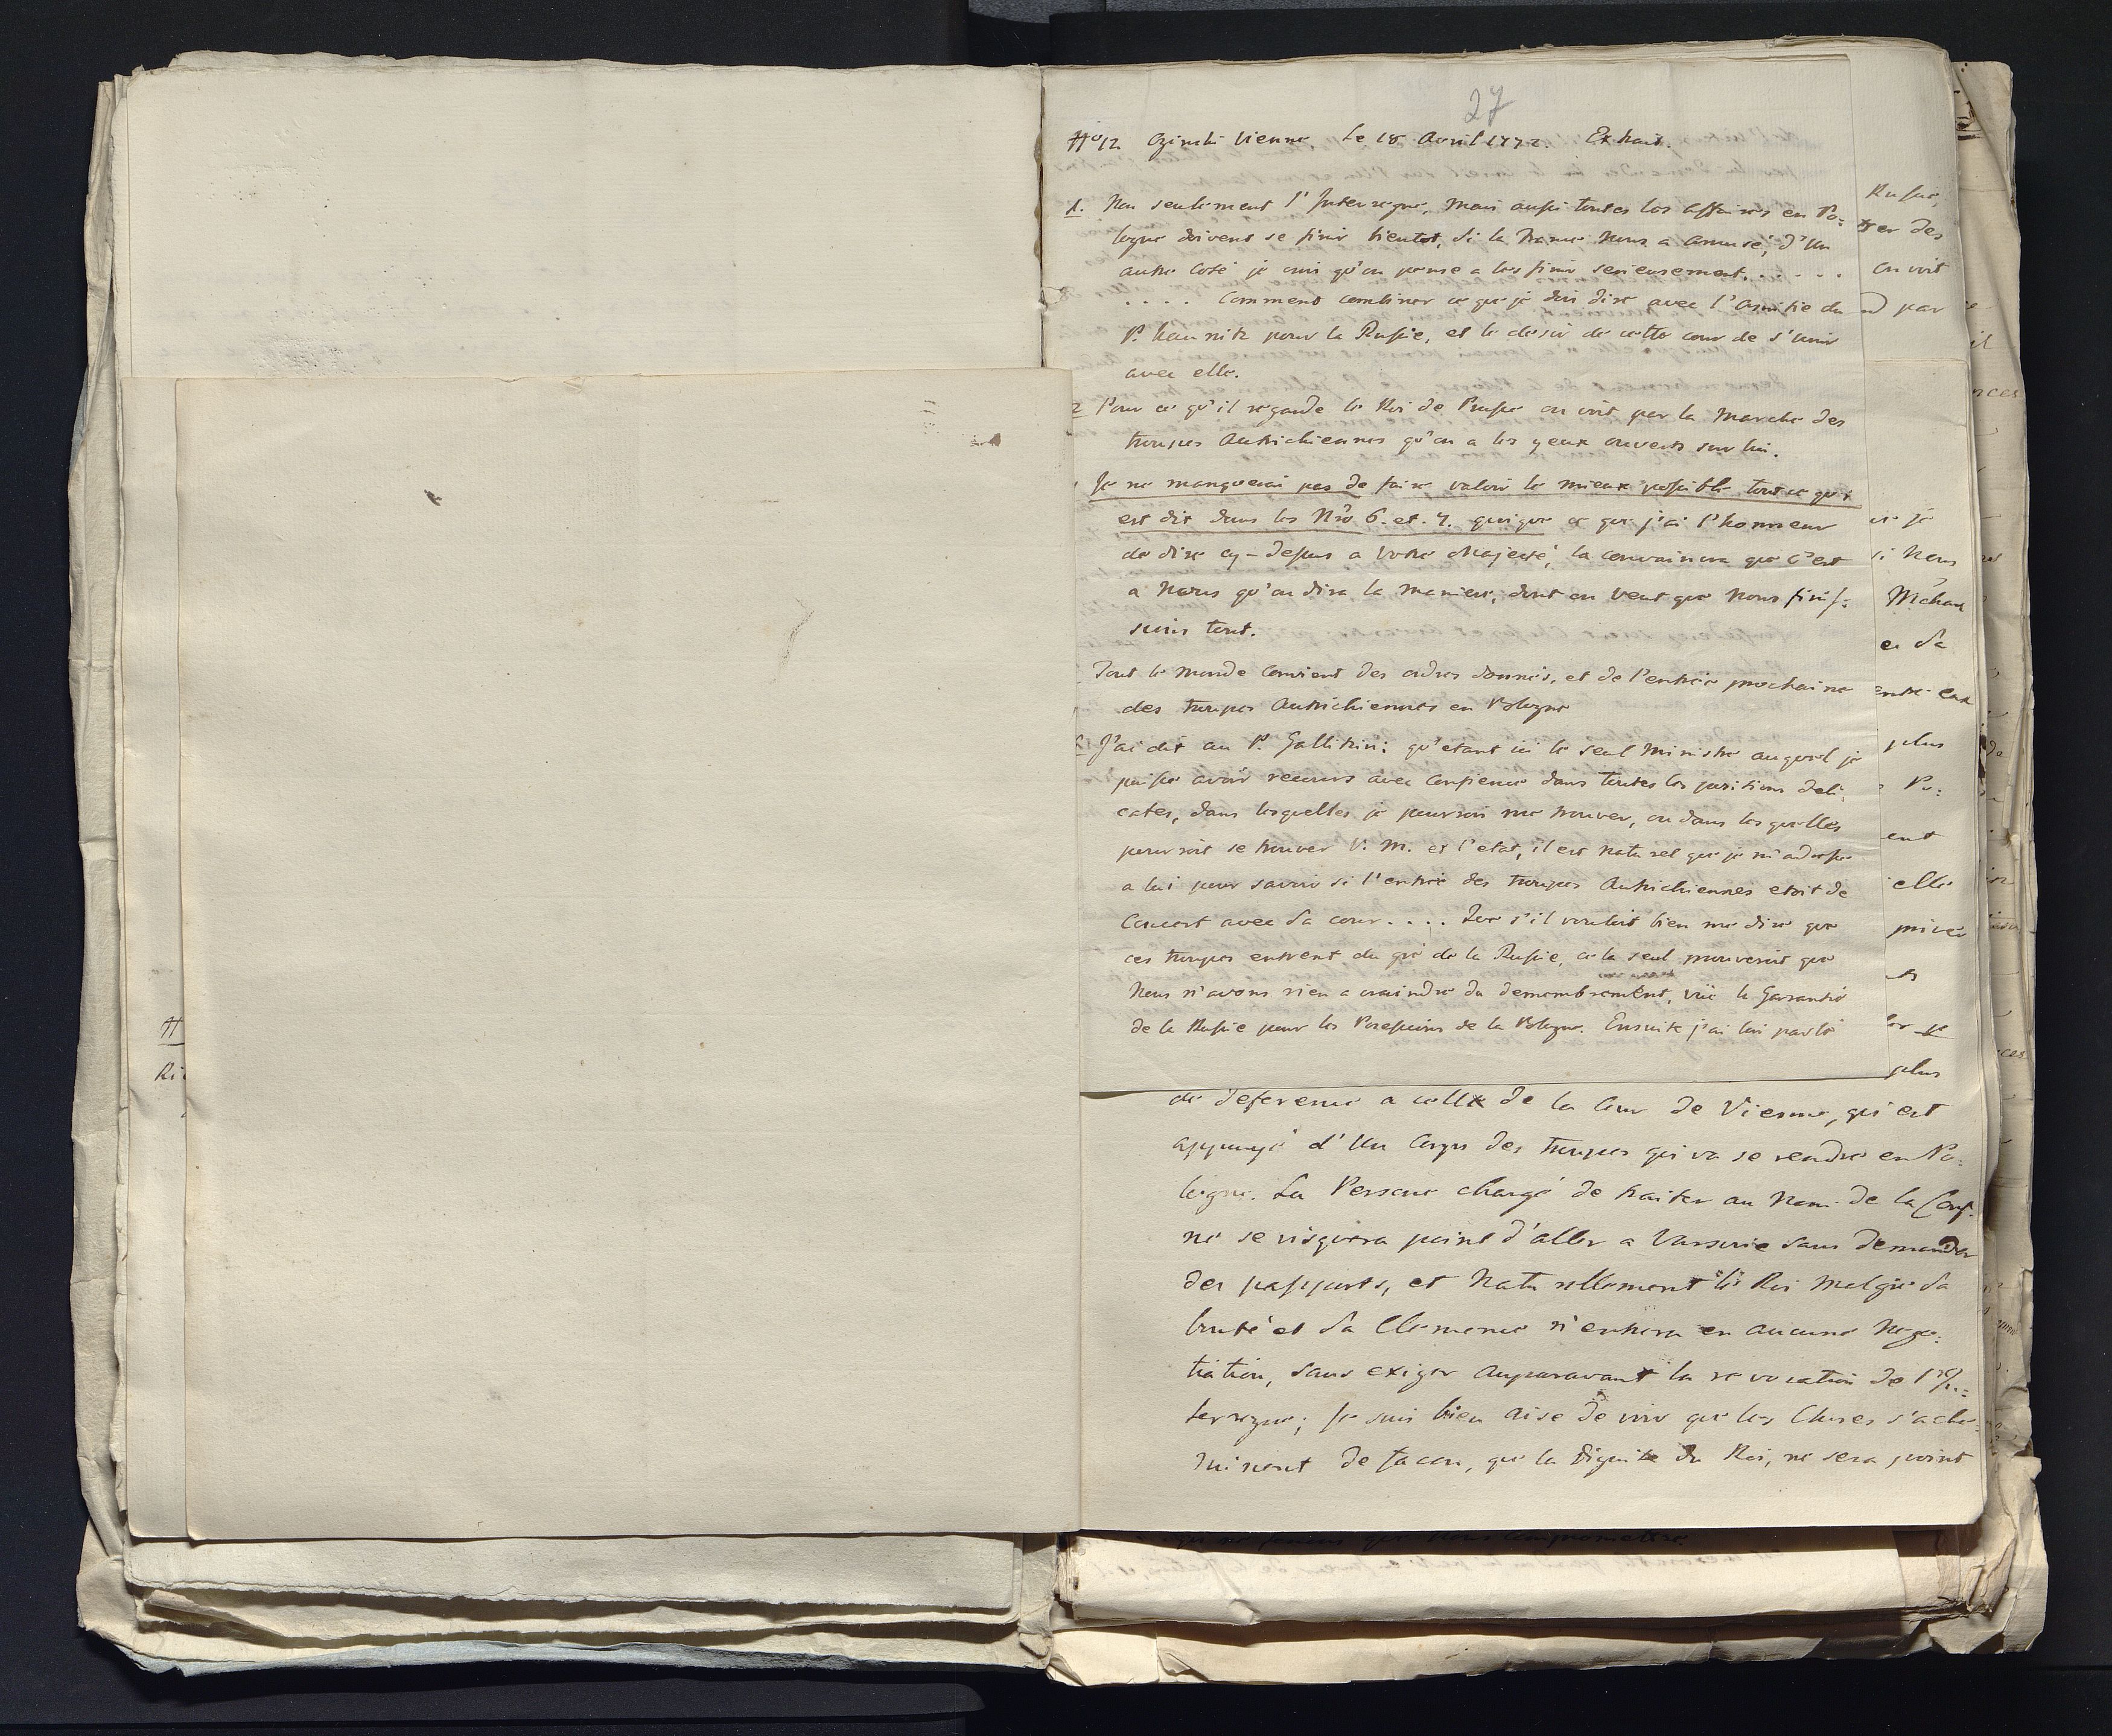 27
No 12 Oginski Vienne. Le 18 Avril 1772. Extrait.
1. Non seulement l'Interregne, mais aussi toutes les affaires en Po=
logne doivent se finir bientot, si la France nous a amusé, d'un
autre coté je crois qu'on pense a les finir serieusement. . . . . .
. . . . Comment combiner ce que je dois dire avec l'amitie du
P. Kaunitz pour la Russie, et le desir de cette cour de s'unir
avec elle.
2 Pour ce qu'il regarde le Roi de Prusse on voit par la marche des
troupes Autrichiennes qu'on a les yeux ouverts sur lui.
Je ne manquerai pas de faire valoir le mieux possible tout ce qui
est dit dans les Nro 6. et. 7. quoique ce que j'ai l'honneur
de dire cy-dessus a Votre Majesté, la convaincra que c'est
a Nous qu'on dira la maniere, dont on veut que Nous finis=
sions tout.
Tout le monde convient des ordres donnés, et de l'entrée prochaine
des troupes Autrichiennes en Pologne
J'ai dit au P. Gallitzin: qu'etant ici le seul ministre auquel je
puisse avoir recours avec confience dans toutes les positions deli=
cates, dans lesquelles je pourrois me trouver, ou dans lesquelles
pourroit se trouver V. M. et l'etat, il est naturel que je m'adresse
a lui pour savoir si l'entrée des troupes Autrichiennes etoit de
Concert avec Sa cour. . . . Que s'il vouloit bien me dire que
ces troupes entrent du gré de la Russie, cela seul prouveroit que
Nous n'avons rien a craindre du demembrement, vüe la Garantie
de la Russie pour les Possessions de la Pologne. Ensuite j'ai lui parlé
de deference a celle de la Cour de Vienne, qui est
appuyé d'un Corps des troupes qui va se rendre en Po=
logne. La Persone chargé de traiter au Nom de la Conf.
ne se risquera point d'aller a Varsovie sans demander
des passports, et naturellement le Roi malgré Sa
bonté et Sa Clemence n'entrera en aucune Nego=
tiation, sans exiger auparavant la revocation de l'In=
terregne; Je suis bien aise de voir que les Choses s'ache=
minent de facon, que la dignite du Roi, ne sera point
Russie,
er des
on voit
par
je
si Nous
Méchan
e Sa
entre eux
plus
Po=
ent
elle
privée
plus